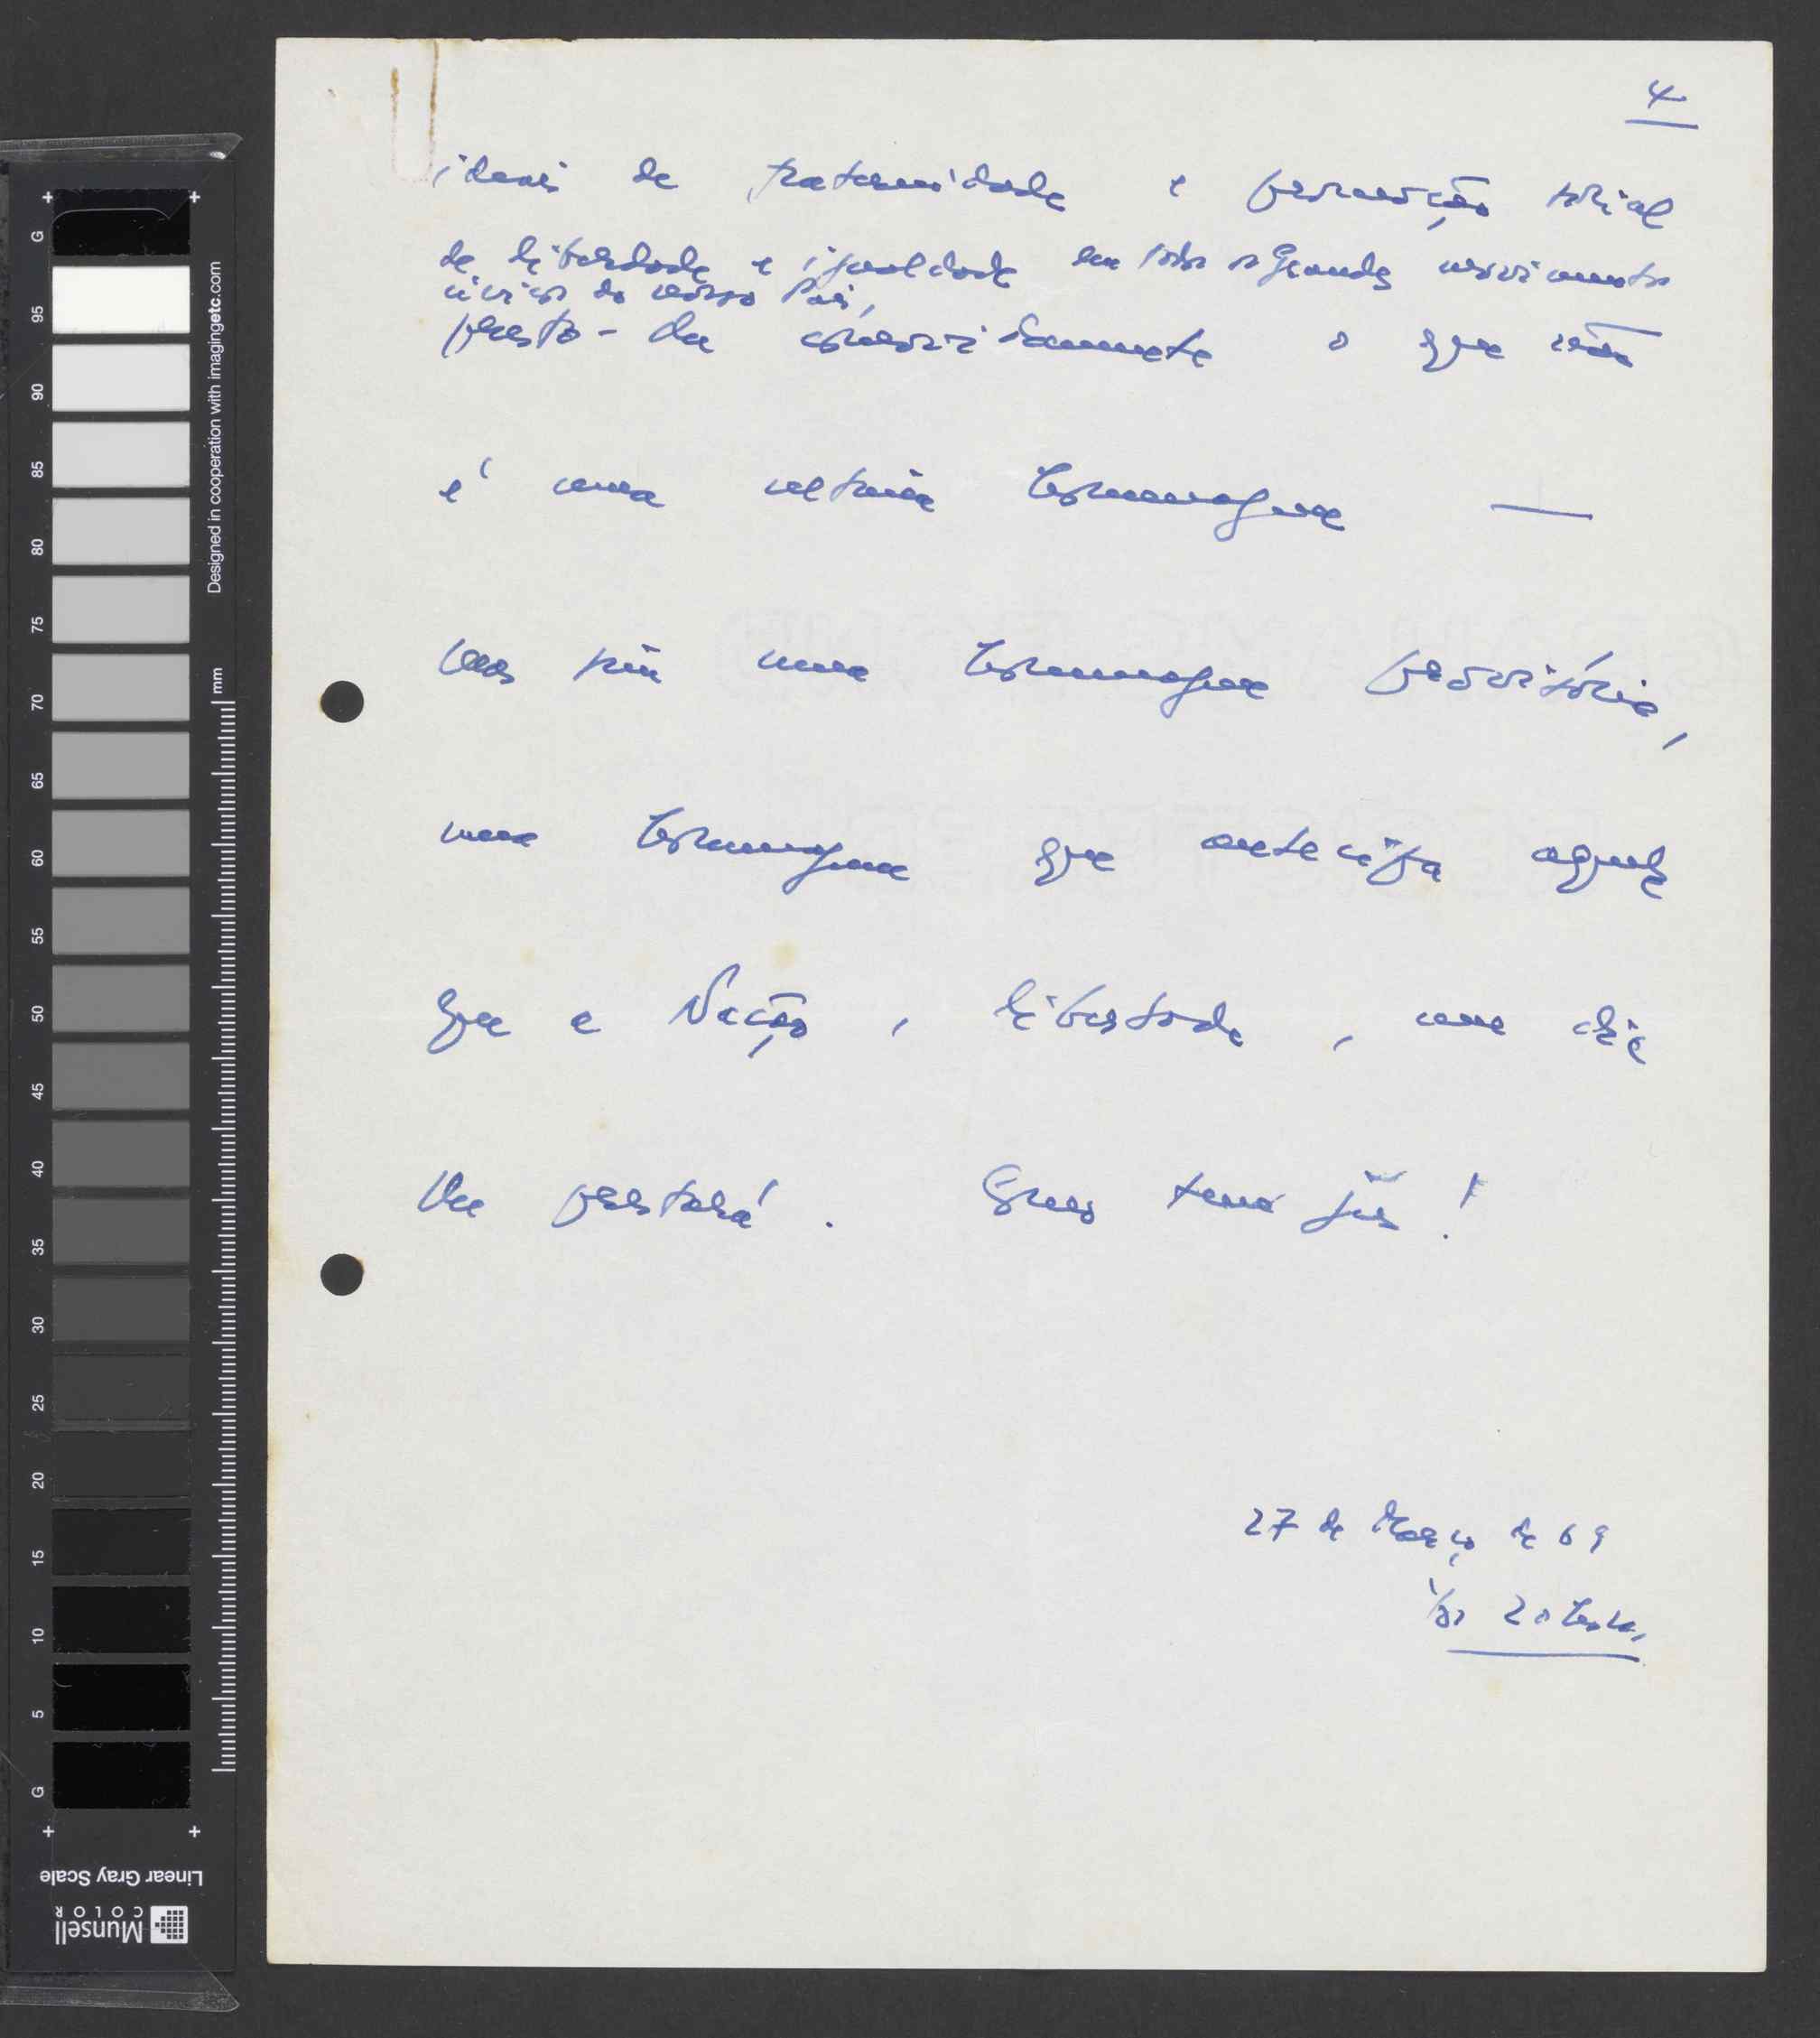 4
ideais de fraternidade e promoção social
de liberdade e igualdade em todos os grandes movimentos
cívicos do nosso País,
presto-lhe comovidamente o que não
é uma última homenagem —
mas sim uma homenagem provisória,
uma homenagem que antecipa aquela
que a Nação, libertada, um dia
lhe prestará.
27 de Março de 69
Designed in cooperation with imagingetc.com
mm
G
95
90
85
80
75
70
65
60
55
50
45
40
35
30
25
20
15
10
5
G
Linear Gray Scale
Munsell
COLOR